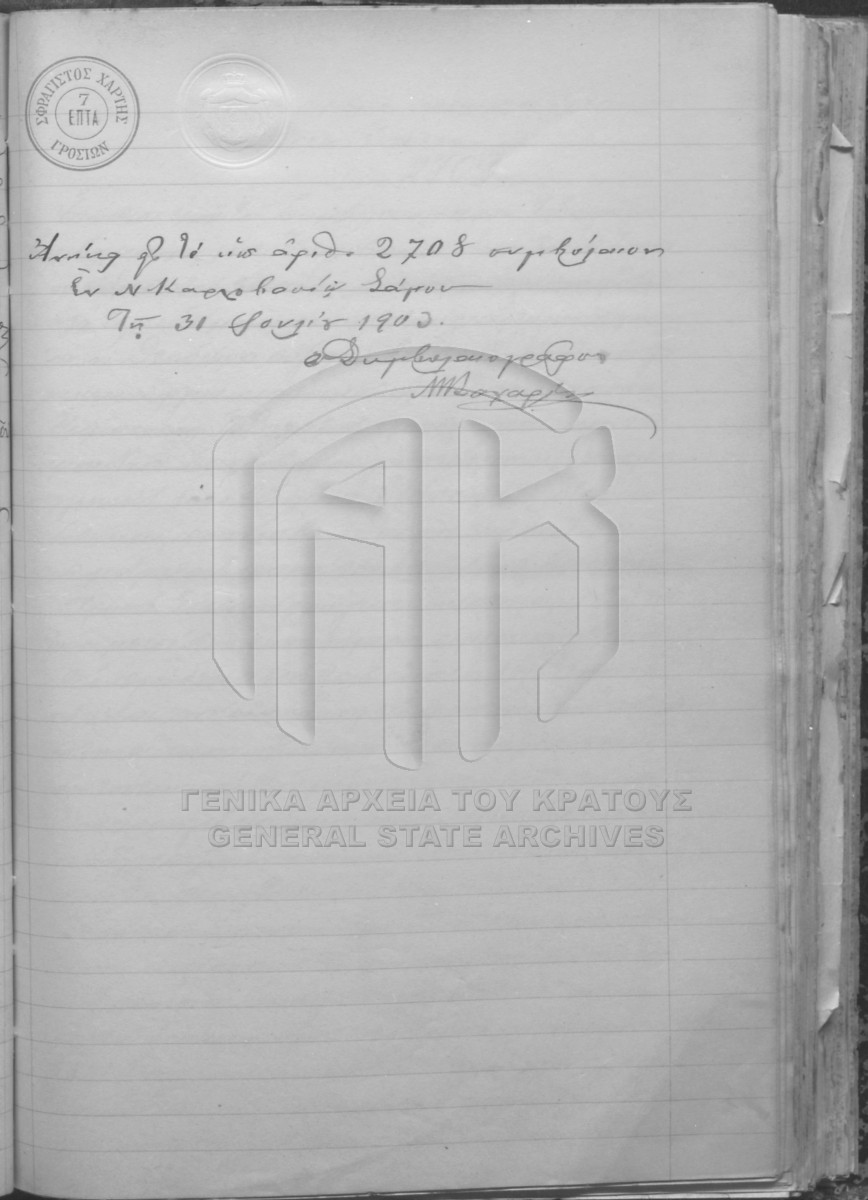 ΣΦΡΑΓΙΣΤΟΣ ΧΑΡΤΗΣ
7
ΕΠΤΑ
ΓΡΟΣΙΩΝ
Ἀνήκει τὸ ὑπ ἀριθ. 2708 συμβόλαιον
Ἐν Ν Καρλοβασίῳ Σάμου
Τῇ 31 Ἰουλίου 1903.
ὁ Συμβολαιογράφος
ΓΕΝΙΚΑ ΑΡΧΕΙΑ ΤΟΥ ΚΡΑΤΟΥΣ
GENERAL STATE ARCHIVES